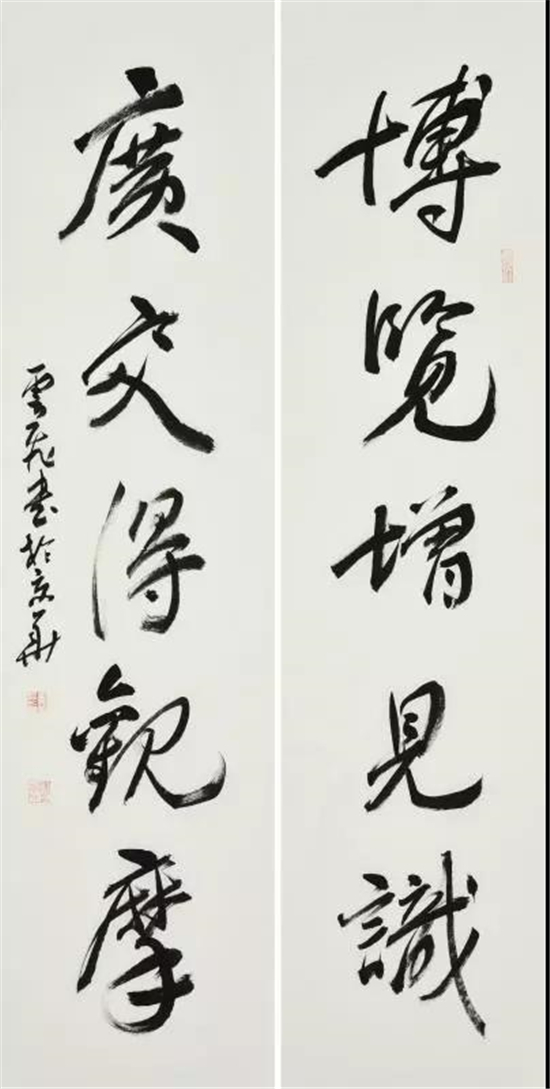 博覽增見識
廣交得觀摩
雲飛書於京華